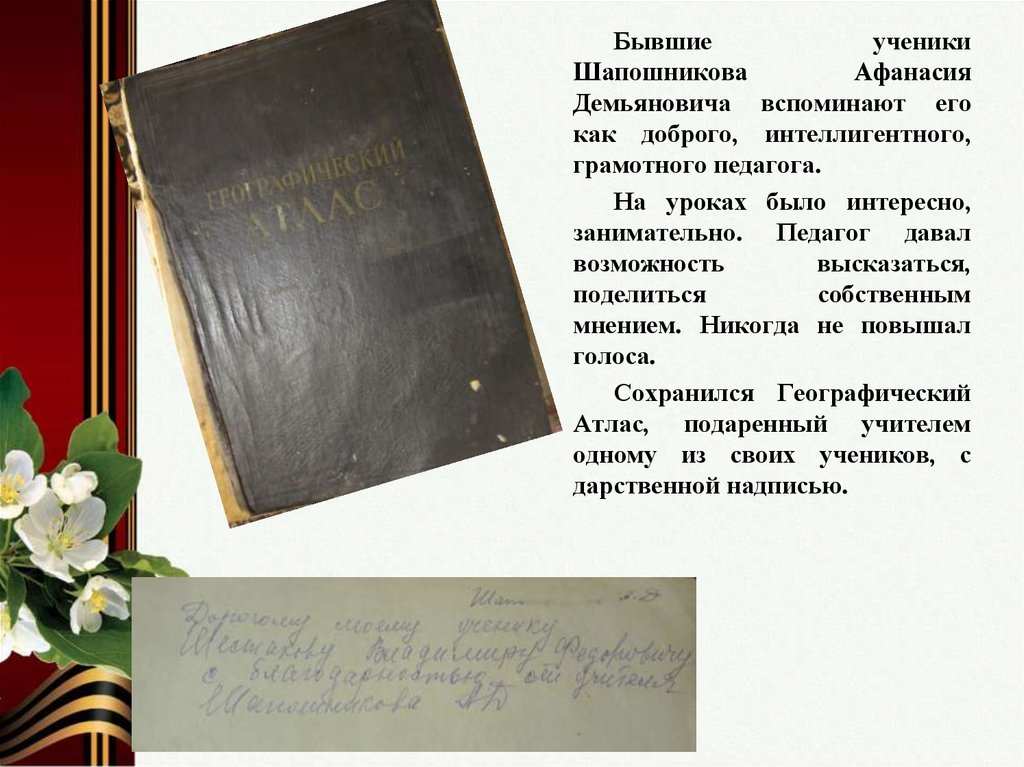 ГЕОГРАФИЧЕСКИЙ
АТЛАС
Бывшие ученики
Шапошникова Афанасия
Демьяновича вспоминают его
как доброго, интеллигентного,
грамотного педагога.
На уроках было интересно,
занимательно. Педагог давал
возможность высказаться,
поделиться собственным
мнением. Никогда не повышал
голоса.
Сохранился Географический
Атлас, подаренный учителем
одному из своих учеников, с
дарственной надписью.
А.Д
Дорогому моему ученику
Шестакову Владимиру Федоровичу
с благодарностью от учителя
Шапошникова АД